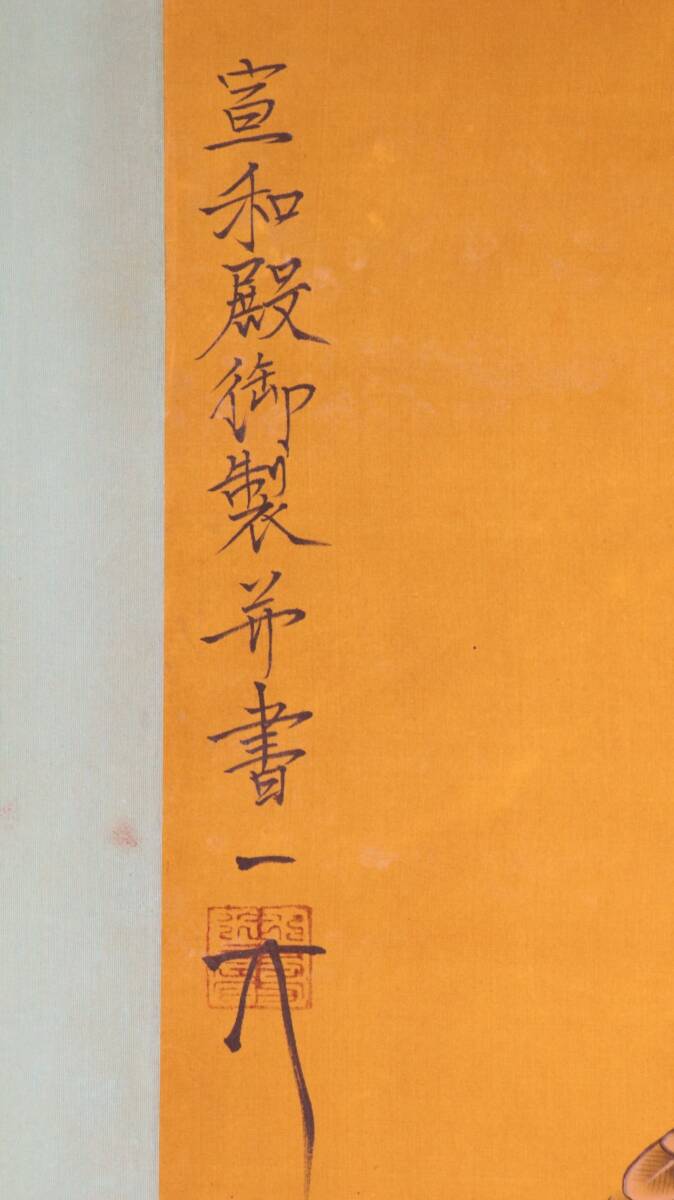 宣和殿御製并書一